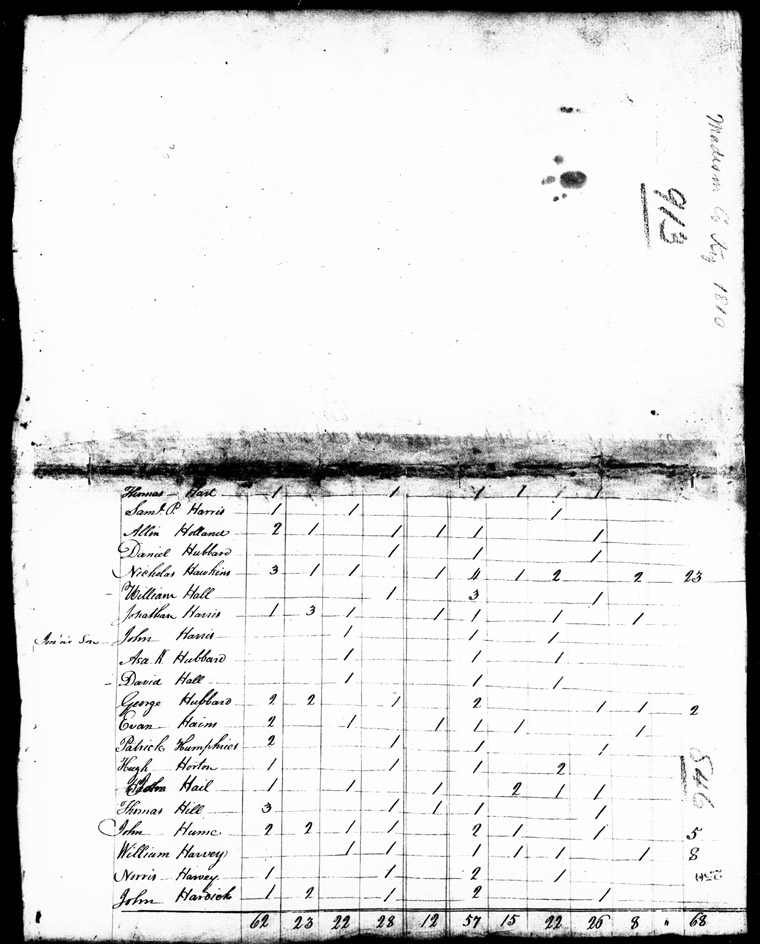 Madison Co Ky 1810
913
Thomas Hart 1 1 1 1 1 1
Saml. P. Harris 1 1 1
Allin Holland 2 1 1 1 1 1
Daniel Hubbard 1 1 1
Nicholas Hawkins 3 1 1 1 4 1 2 2 23
William Hall 1 3 1
Jonathan Harris 1 3 1 1 1 1 1
John Harris 1 1 1
Asa K Hubbard 1 1 1
David Hall 1 1 1
George Hubbard 2 2 1 2 1 1 2
Evan Hains 2 1 1 1 1 1
Patrick Humphries 2 1 1 1
Hugh Horton 1 1 1 2
John Hail 1 1 1 2 1 1
Thomas Hill 3 1 1 1 1
John Hume 2 2 1 1 2 1 1 5
William Harvey 1 1 1 1 1 1 8
Norris Harvey 1 1 2 1
John Hardick 1 2 1 2 1
62 23 22 28 12 57 15 22 26 8 " 68
546